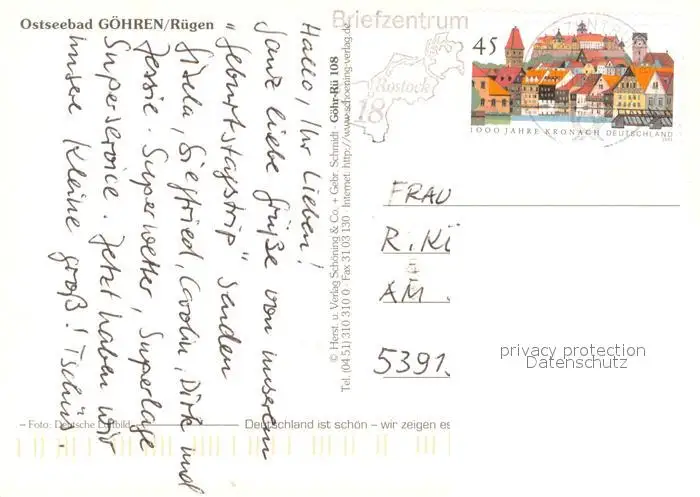 Ostseebad GÖHREN/Rügen
Hallo, Ihr Lieben!
Ganz liebe Grüße von unserem
"Geburtstagstrip" senden
Gisela, Siegfried, Carolin, Dirk und
Jessie. Superwetter, Superlage
Superservice. Jetzt haben wir
unsere Kleine groß! Tschüss.
– Foto: Deutsche Luftbild
© Herst. u. Verlag Schöning & Co. + Gebr. Schmidt · Göhr-Rü 108
Tel. (04 51) 310 310 0 · Fax 31 03 130 · Internet: http://www.schoening-verlag.de
Briefzentrum
Rostock
18
45
1000 JAHRE KRONACH DEUTSCHLAND
FRAU
R. KI
AM
5391.
privacy protection
Datenschutz
Deutschland ist schön – wir zeigen es